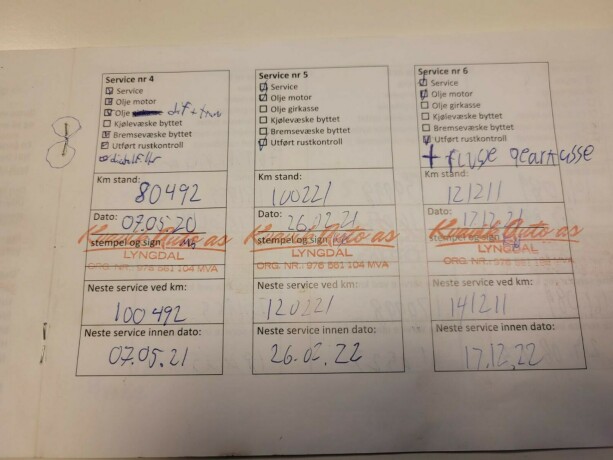 Service nr 4
Service
Olje motor
Olje diff + trans
Kjølevæske byttet
Bremsevæske byttet
Utført rustkontroll
Km stand:
80492
Dato:
07.05.20
stempel og sign.
Kvavik Auto as
LYNGDAL
ORG. NR.: 976 661 104 MVA
Neste service ved km:
100492
Neste service innen dato:
07.05.21
Service nr 5
Service
Olje motor
Olje girkasse
Kjølevæske byttet
Bremsevæske byttet
Utført rustkontroll
Km stand:
100221
Dato:
26.02.21
stempel og sign.
Kvavik Auto as
LYNGDAL
ORG. NR.: 976 661 104 MVA
Neste service ved km:
120221
Neste service innen dato:
26.02.22
Service nr 6
Service
Olje motor
Olje girkasse
Kjølevæske byttet
Bremsevæske byttet
Utført rustkontroll
+ gearkasse
Km stand:
121211
Dato:
17.12.21
stempel og sign.
Kvavik Auto as
LYNGDAL
ORG. NR.: 976 661 104 MVA
Neste service ved km:
141211
Neste service innen dato:
17.12.22